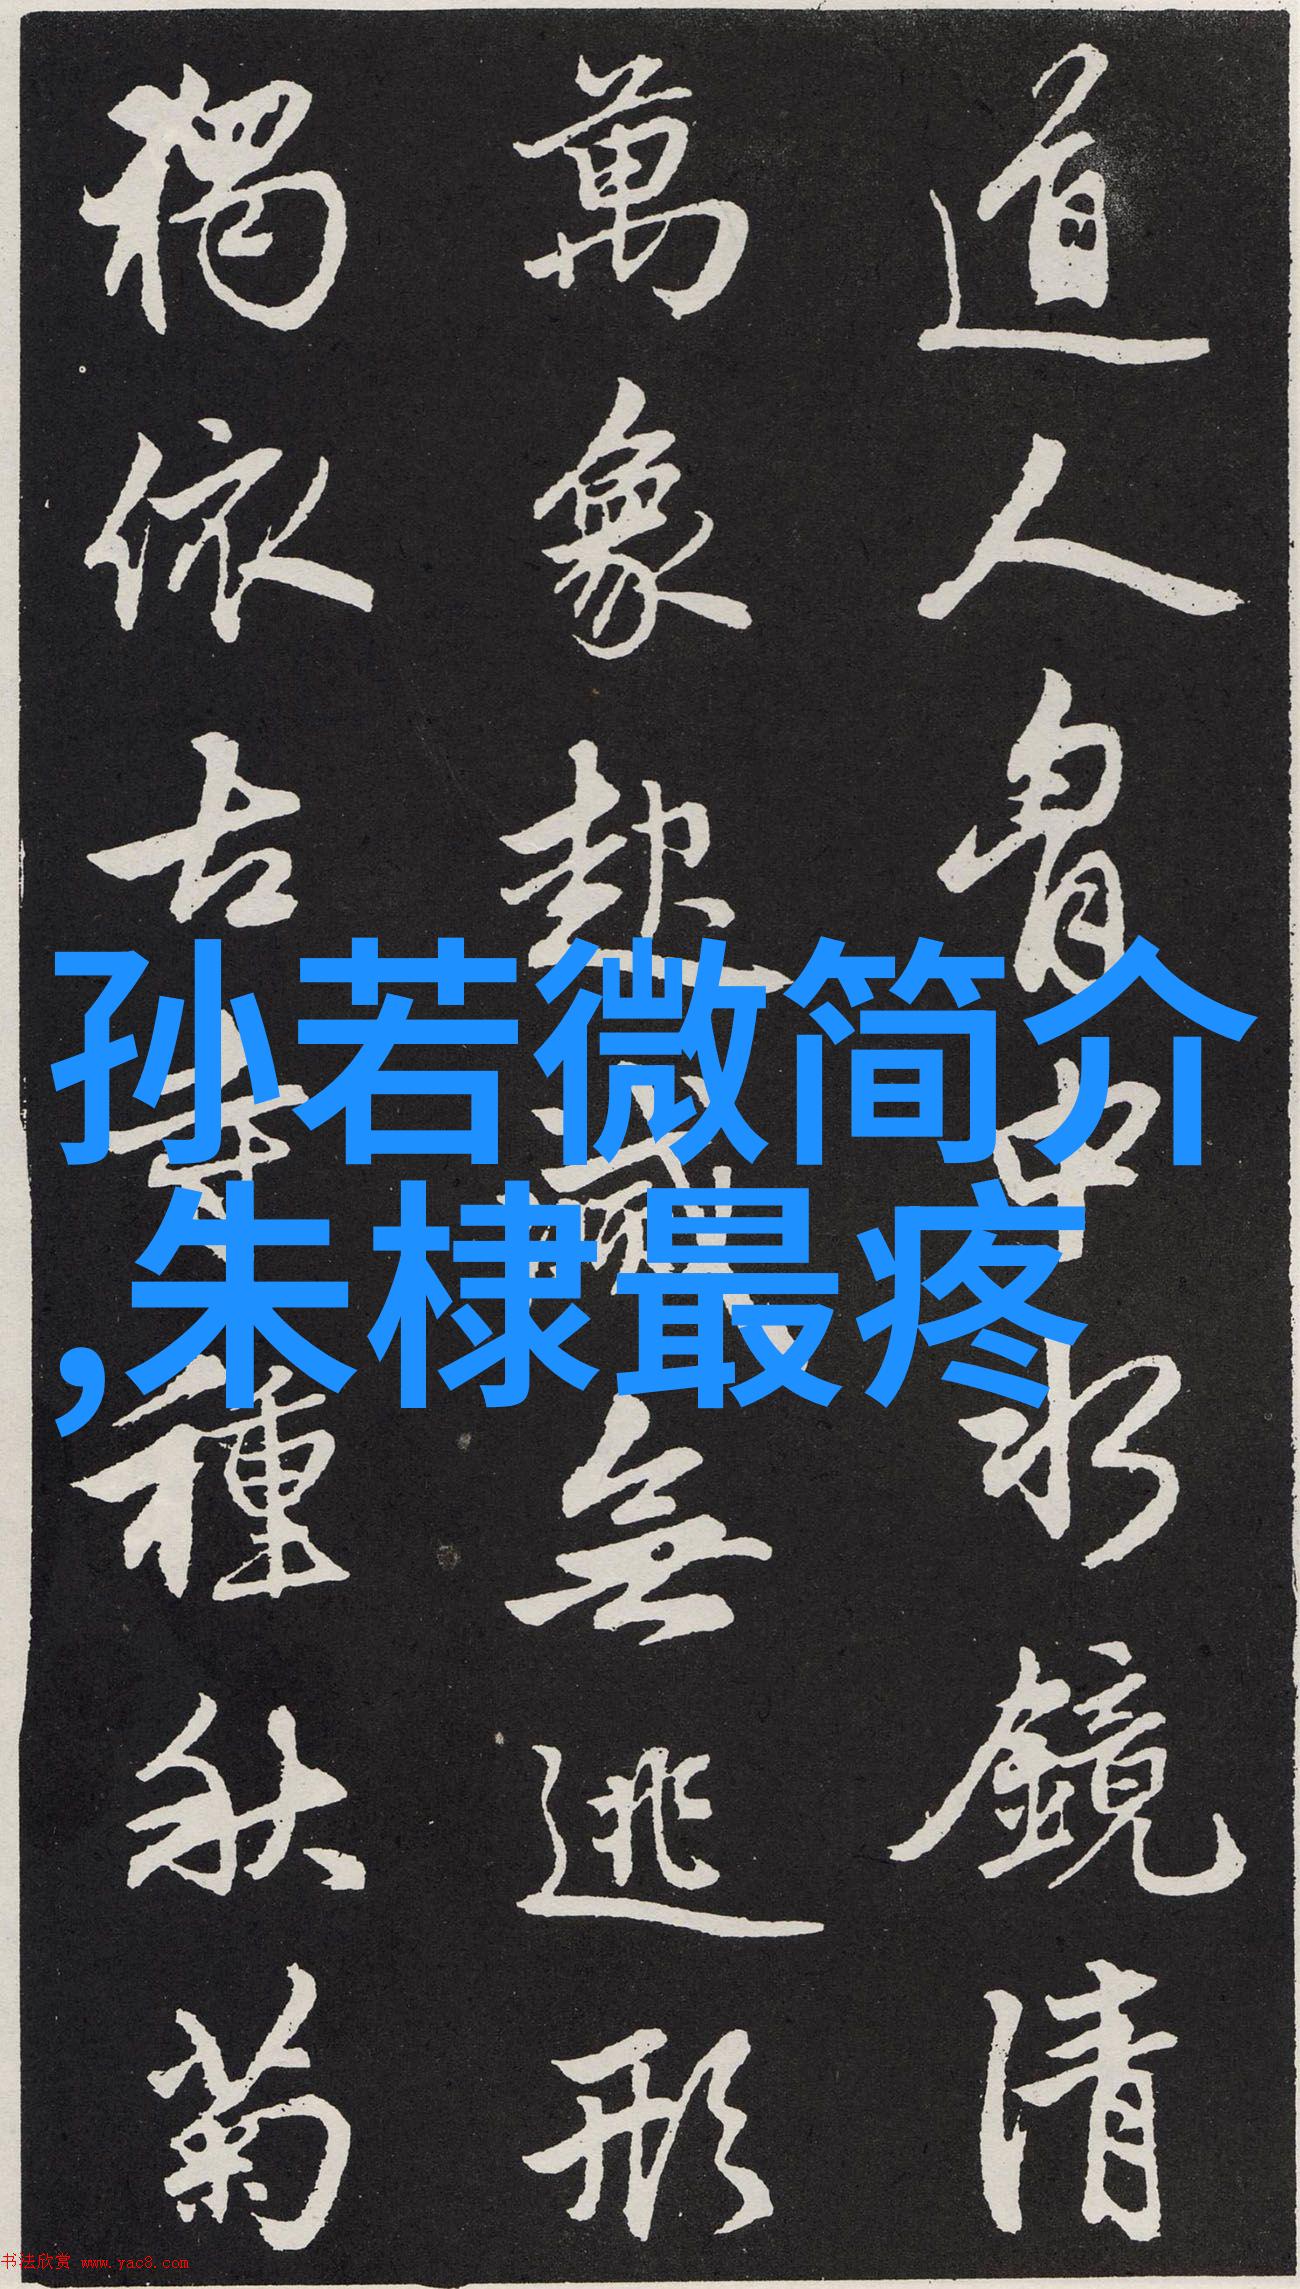 道人胷中水鏡清
萬象起滅無逃形
獨依古寺種秋菊
孙若微简介
,朱棣最疼
书法欣赏 www.yac8.com